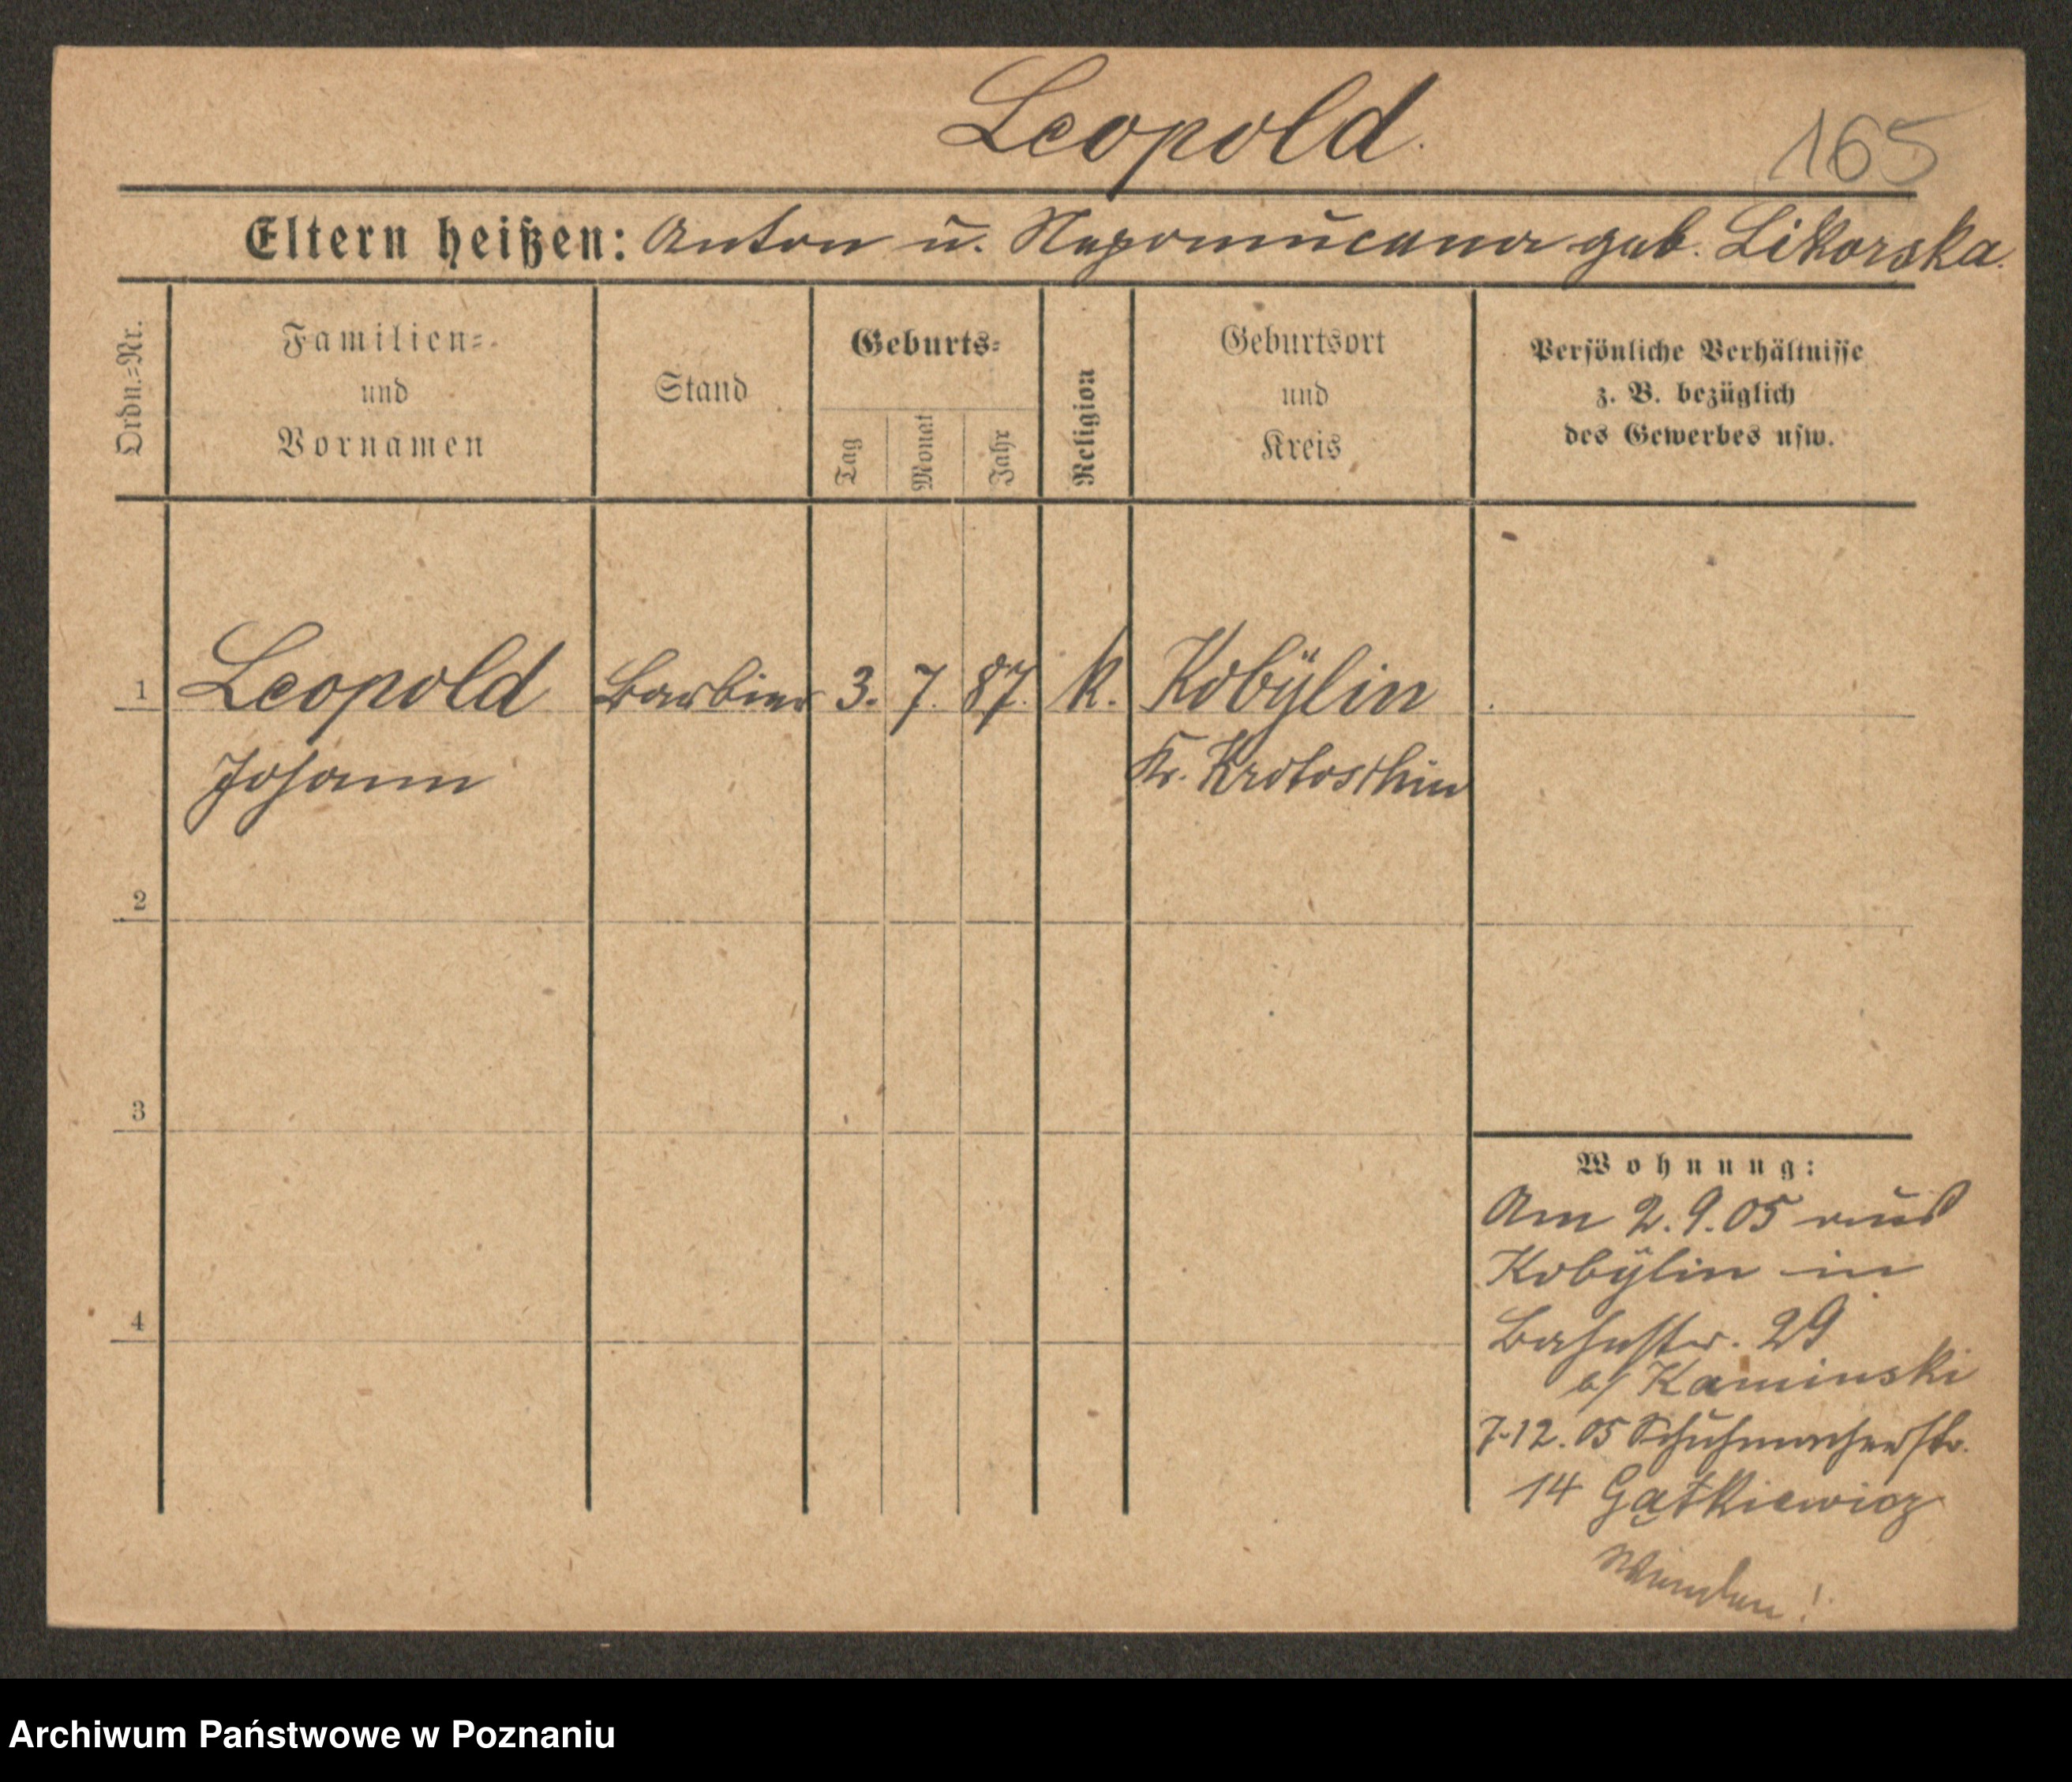 Leopold.
165
Eltern heißen: Anton u. Nepomucena geb. Likorska.
Ordn.=Nr.
Familien=
und
Vornamen
Stand
Geburts=
Tag
Monat
Jahr
Religion
Geburtsort
und
Kreis
Persönliche Verhältnisse
z. B. bezüglich
des Gewerbes usw.
1 Leopold Barbier 3. 7. 87. k. Kobÿlin
Johann Kr. Krotoschin
2
3
4
Wohnung:
Am 2.9.05 aus
Kobÿlin in
Bahnstr. 29
b/ Kaminski
7.12.05 Schuhmacherstr.
14 Gątkiewicz
Archiwum Państwowe w Poznaniu